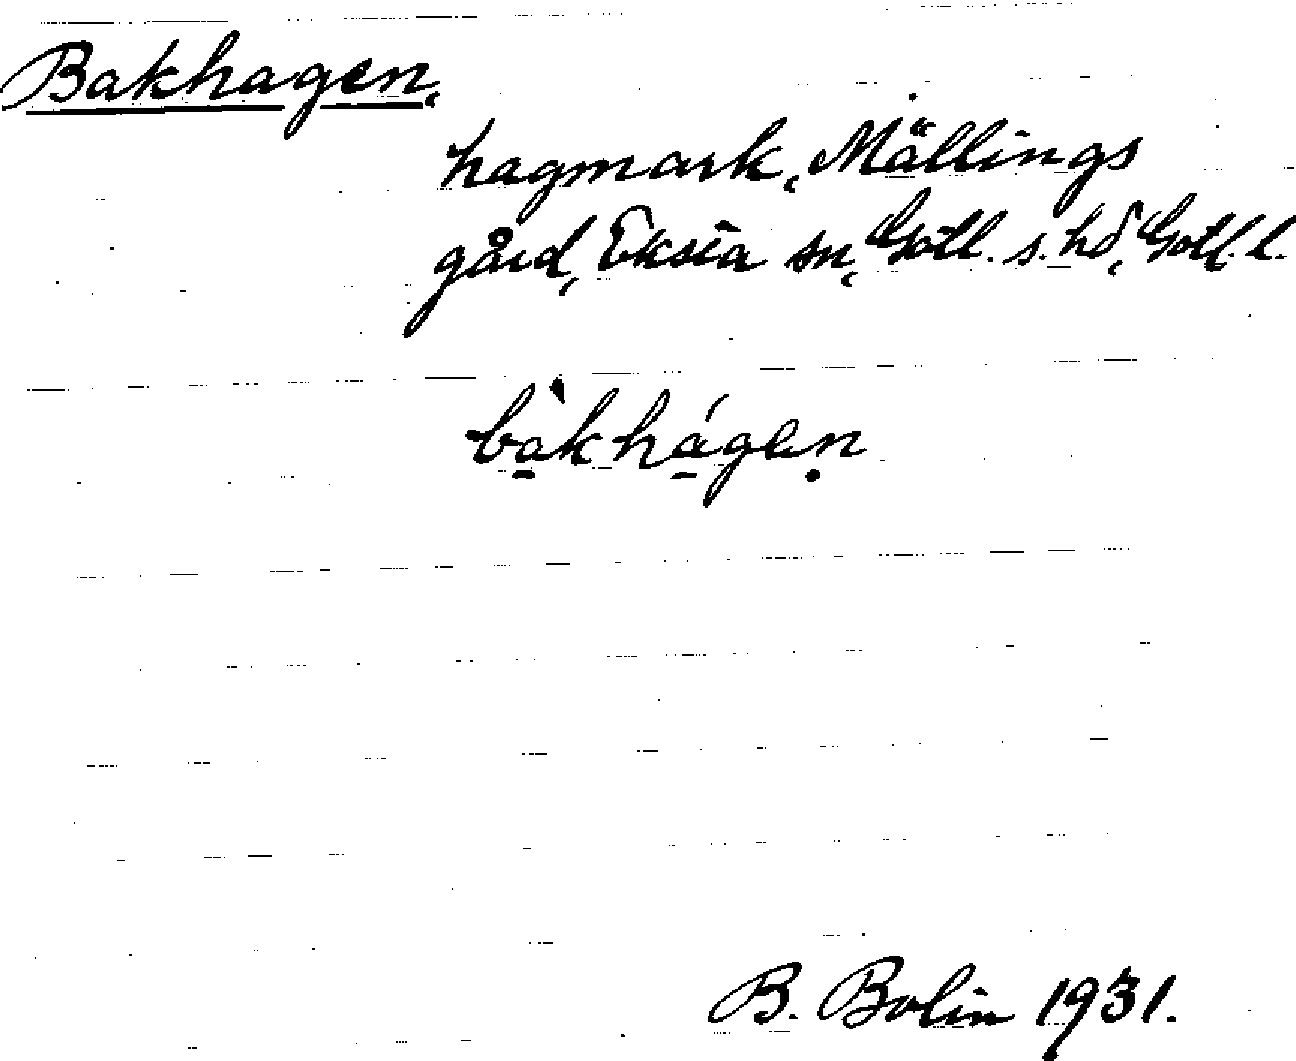 Bakhagen,
hagmark, Mällings
gård, Eksta sn, Gotl. s. hd, Gotl. l.
bàkhágen
B. Bolin 1931.